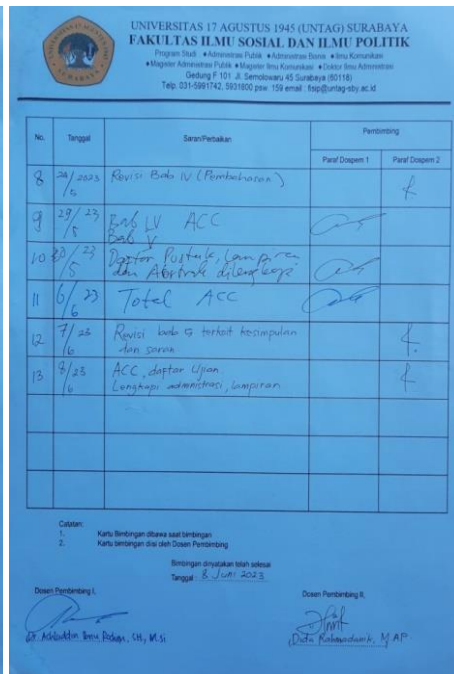 UNIVERSITAS 17 AGUSTUS 1945 (UNTAG) SURABAYA
FAKULTAS ILMU SOSIAL DAN ILMU POLITIK
Program Studi : ♦ Administrasi Publik ♦ Administrasi Bisnis ♦ Ilmu Komunikasi
♦ Magister Administrasi Publik ♦ Magister Ilmu Komunikasi ♦ Doktor Ilmu Administrasi
Gedung F 101 Jl. Semolowaru 45 Surabaya (60118)
Telp. 031-5991742, 5931800 psw. 159 email : fisip@untag-sby.ac.id
No. Tanggal Saran/Perbaikan Pembimbing
Paraf Dospem 1 Paraf Dospem 2
8 24/5 2023 Revisi Bab IV (Pembahasan)
9 29/5 23 Bab IV ACC
Bab V
10 30/5 23 Daftar Pustaka, Lampiran
dan Abstrak dilengkapi
11 6/6 23 Total ACC
12 7/6 23 Revisi bab 5 terkait kesimpulan
dan saran
13 8/6 23 ACC, daftar Ujian
Lengkapi administrasi, lampiran
Catatan:
1. Kartu Bimbingan dibawa saat bimbingan
2. Kartu bimbingan diisi oleh Dosen Pembimbing
Bimbingan dinyatakan telah selesai
Tanggal : 8 Juni 2023
Dosen Pembimbing I,
Dosen Pembimbing II,